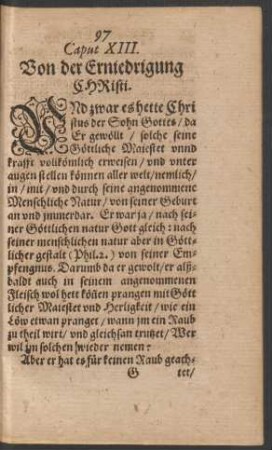 97
Caput XIII.
Von der Erniedrigung
CHRisti.
VNd zwar es hette Chri
stus der Sohn Gottes / da
Er gewöllt / solche seine
Göttliche Maiestet vnnd
krafft vollkömlich erweisen / vnd vnter
augen stellen können aller welt / nemlich /
in / mit / vnd durch seine angenommene
Menschliche Natur / von seiner Geburt
an vnd jmmerdar. Er war ja / nach sei-
ner Göttlichen natur Gott gleich: nach
seiner menschlichen natur aber in Gött-
licher gestalt (Phil. 2.) von seiner Em-
pfengnus. Darumb da er gewolt / er alß-
baldt auch in seinem angenommenen
Fleisch wol hett köñen prangen mit Gött
licher Maiestet vnd Herligkeit / wie ein
Löw etwan pranget / wann jm ein Raub
zu theil wirt / vnd gleichsam trutzet / Wer
wil jm solchen wieder nemen?
Aber er hat es für keinen Raub geach-
G tet /